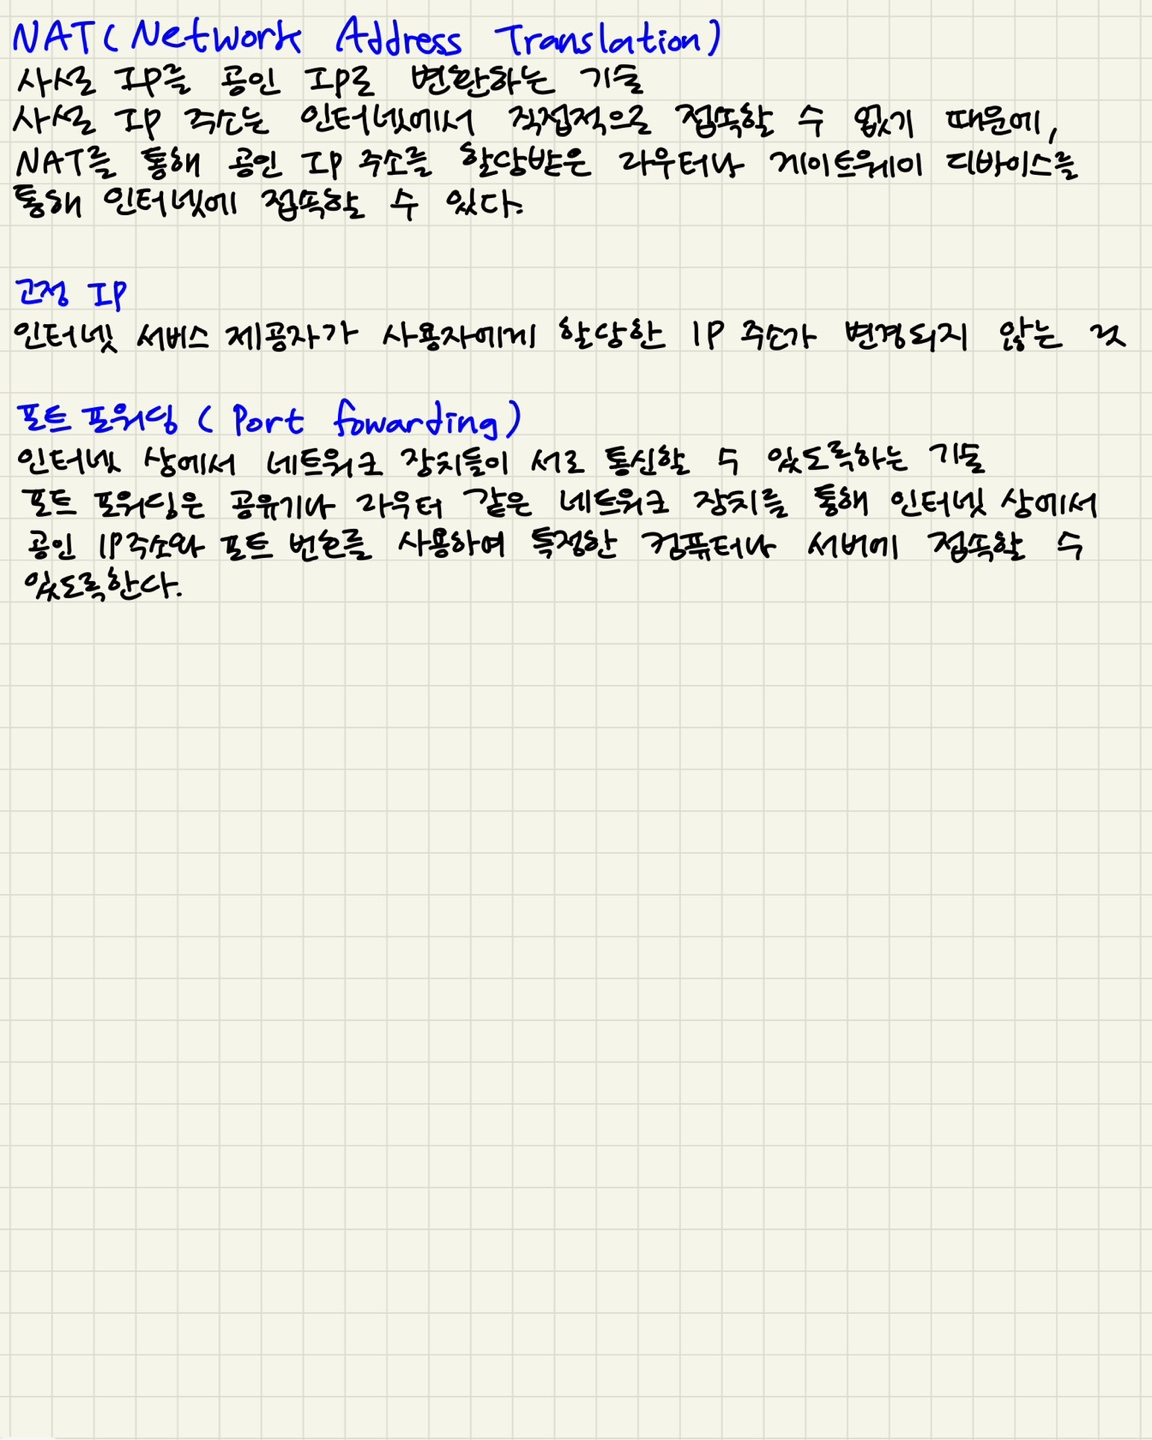 NAT(Network Address Translation)
사설 IP를 공인 IP로 변환하는 기술
사설 IP 주소는 인터넷에서 직접적으로 접속할 수 없기 때문에,
NAT를 통해 공인 IP 주소를 할당받은 라우터나 게이트웨이 디바이스를
통해 인터넷에 접속할 수 있다.
고정 IP
인터넷 서비스 제공자가 사용자에게 할당한 IP 주소가 변경되지 않는 것
포트 포워딩 ( Port fowarding )
인터넷 상에서 네트워크 장치들이 서로 통신할 수 있도록하는 기술
포트 포워딩은 공유기나 라우터 같은 네트워크 장치를 통해 인터넷 상에서
공인 IP주소와 포트 번호를 사용하여 특정한 컴퓨터나 서버에 접속할 수
있도록한다.